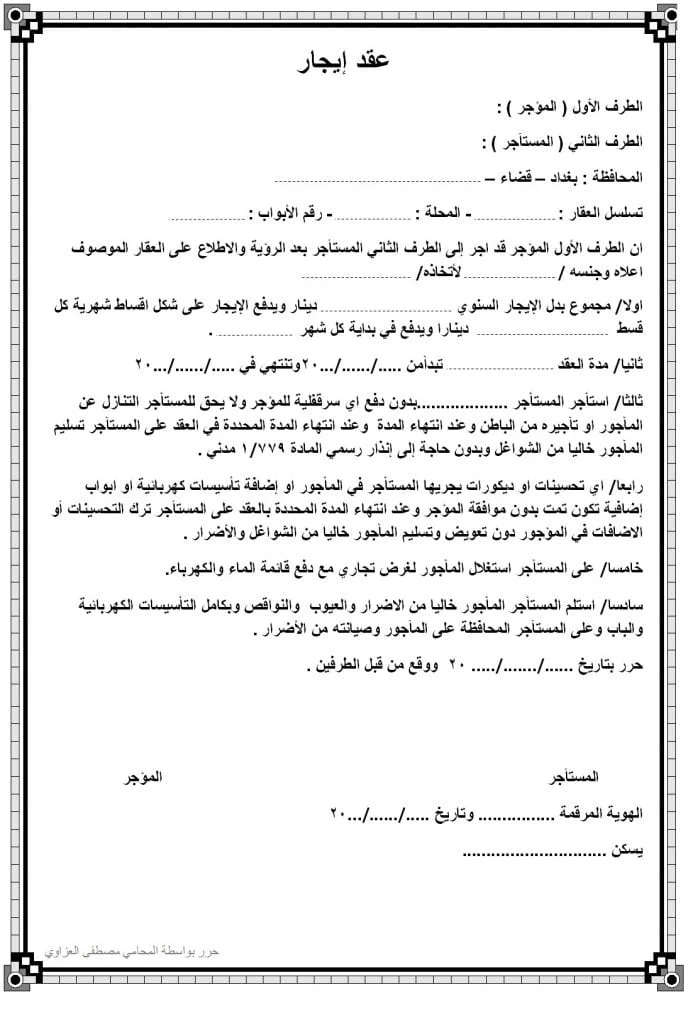 عقد إيجار
الطرف الأول ( المؤجر ) :
الطرف الثاني ( المستأجر ) :
المحافظة : بغداد – قضاء – ............................................
تسلسل العقار : .................. - المحلة : ................ - رقم الأبواب : ................
ان الطرف الأول المؤجر قد اجر إلى الطرف الثاني المستأجر بعد الرؤية والاطلاع على العقار الموصوف
اعلاه وجنسه / .................... لأتخاذه/ ........................
اولا/ مجموع بدل الإيجار السنوي ............................ دينار ويدفع الإيجار على شكل اقساط شهرية كل
قسط ............................ دينارا ويدفع في بداية كل شهر ................ .
ثانيا/ مدة العقد ....................... تبدأمن ...../....../...٢٠وتنتهي في ...../....../...٢٠
ثالثا/ استأجر المستأجر ...................بدون دفع اي سرقفلية للمؤجر ولا يحق للمستأجر التنازل عن
المأجور او تأجيره من الباطن وعند انتهاء المدة وعند انتهاء المدة المحددة في العقد على المستأجر تسليم
المأجور خاليا من الشواغل وبدون حاجة إلى إنذار رسمي المادة ١/٧٧٩ مدني .
رابعا/ اي تحسينات او ديكورات يجريها المستأجر في المأجور او إضافة تأسيسات كهربائية او ابواب
إضافية تكون تمت بدون موافقة المؤجر وعند انتهاء المدة المحددة بالعقد على المستأجر ترك التحسينات أو
الاضافات في المؤجور دون تعويض وتسليم المأجور خاليا من الشواغل والأضرار .
خامسا/ على المستأجر استغلال المأجور لغرض تجاري مع دفع قائمة الماء والكهرباء.
سادسا/ استلم المستأجر المأجور خاليا من الاضرار والعيوب والنواقص وبكامل التأسيسات الكهربائية
والباب وعلى المستأجر المحافظة على المأجور وصيانته من الأضرار .
حرر بتاريخ ....../......./..... ٢٠ ووقع من قبل الطرفين .
المستأجر المؤجر
الهوية المرقمة ................ وتاريخ ...../....../...٢٠
يسكن ..............................
حرر بواسطة المحامي مصطفى العزاوي